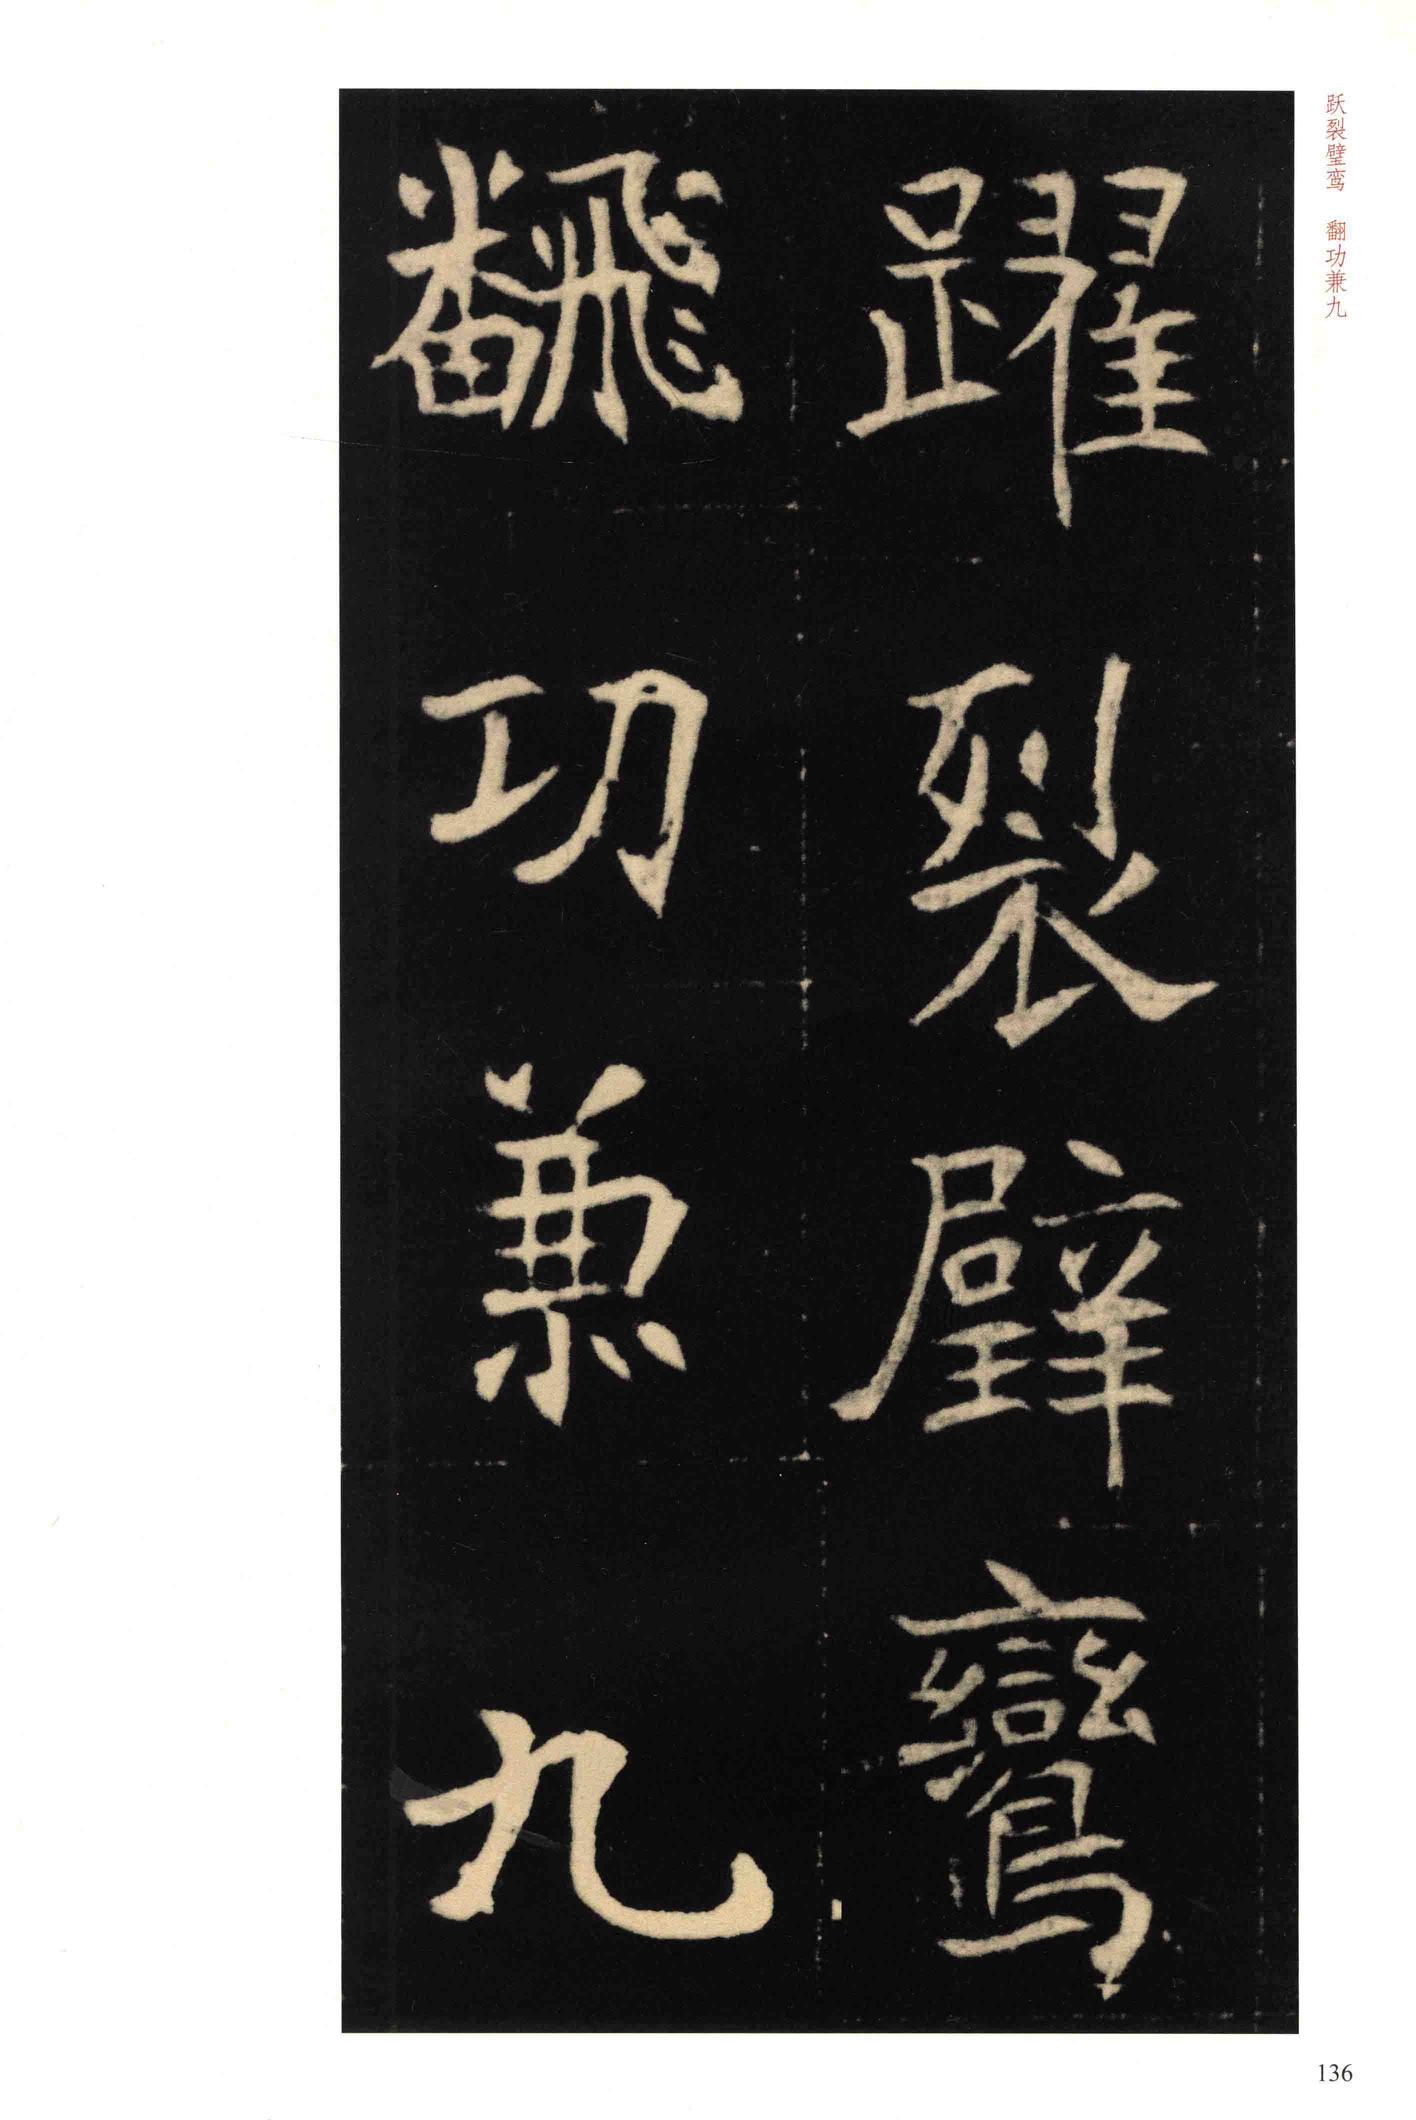 跃裂璧鸾　翻功兼九
躍裂璧鸞
飜功兼九
136